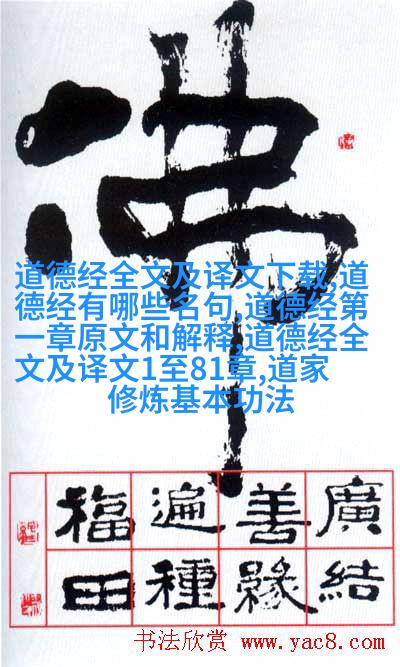 佛
道德经全文及译文下载,道
德经有哪些名句,道德经第
一章原文和解释,道德经全
文及译文1至81章,道家
修炼基本功法
廣結
善緣
遍種
福田
书法欣赏 www.yac8.com